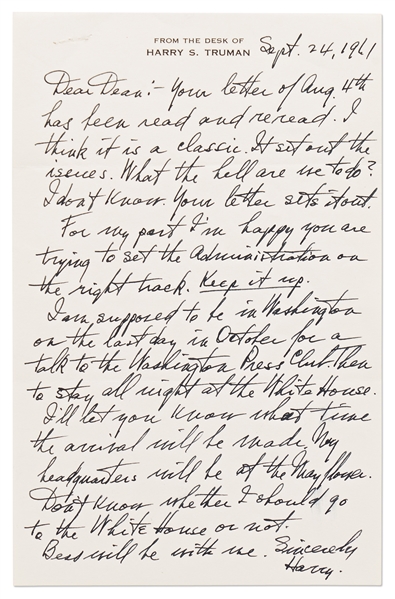 FROM THE DESK OF
HARRY S. TRUMAN
Sept. 24, 1961
Dear Dean:- Your letter of Aug. 4th
has been read and reread. I
think it is a classic. It set out the
issues. What the hell are we to do?
I don't know. Your letter sets it out.
For my part I'm happy you are
trying to set the Administration on
the right track. Keep it up.
I am supposed to be in Washington
on the last day in October for a
talk to the Washington Press Club. Then
to stay all night at the White House.
I'll let you know what time
the arrival will be made. My
headquarters will be at the Mayflower.
Don't know whether I should go
to the White House or not.
Bess will be with me. Sincerely
Harry.